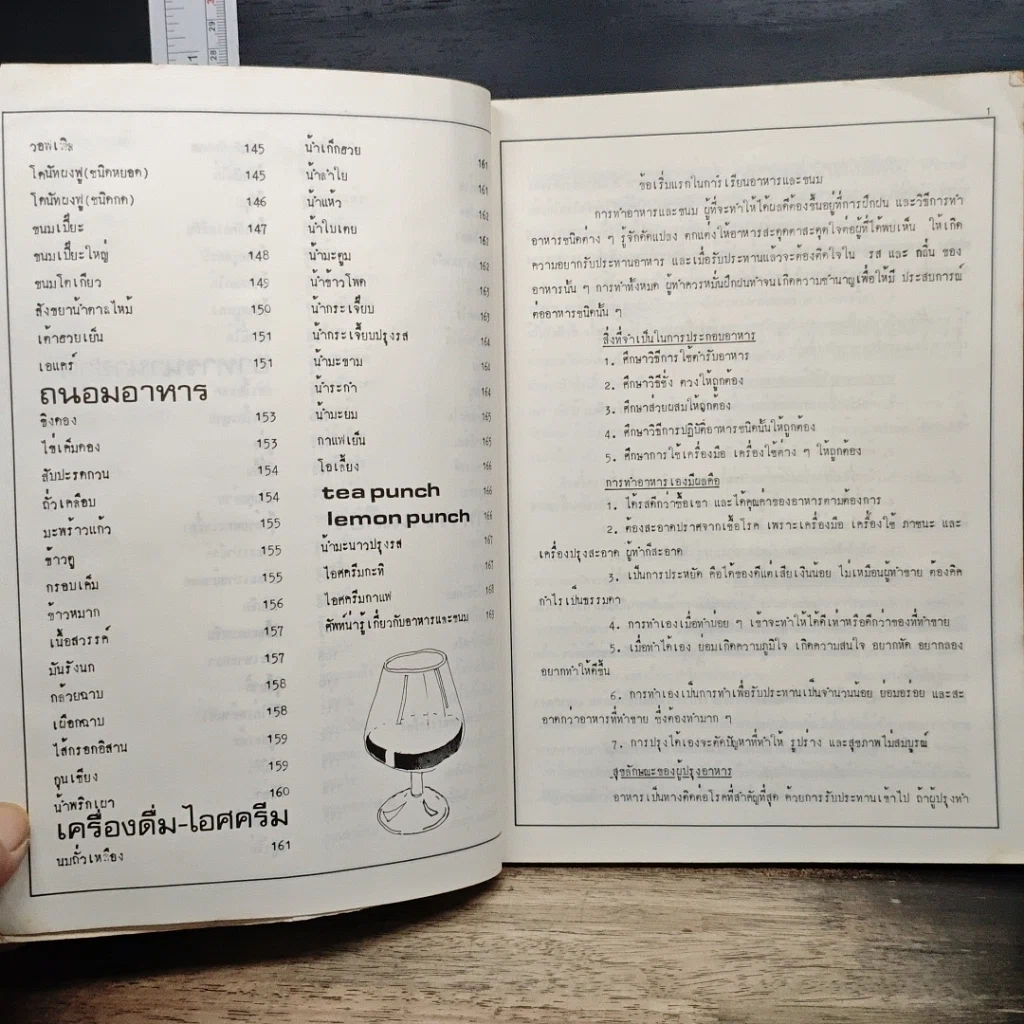 วอฟเฟิล 145
โดนัทผงฟู(ชนิดหยอด) 145
โดนัทผงฟู(ชนิดกด) 146
ขนมเปี๊ยะ 147
ขนมเปี๊ยะใหญ่ 148
ขนมโตเกียว 149
สังขยาน้ำตาลไหม้ 150
เต้าฮวยเย็น 151
เอแคร์ 151
ถนอมอาหาร
ขิงดอง 153
ไข่เค็มดอง 153
สับปะรดกวน 154
ถั่วเคลือบ 154
มะพร้าวแก้ว 155
ข้าวตู 155
กรอบเค็ม 155
ข้าวหมาก 156
เนื้อสวรรค์ 157
มันรังนก 157
กล้วยฉาบ 158
เผือกฉาบ 158
ไส้กรอกอิสาน 159
กุนเชียง 159
น้ำพริกเผา 160
เครื่องดื่ม-ไอศครีม
นมถั่วเหลือง 161
น้ำเก็กฮวย 161
น้ำลำไย 161
น้ำแห้ว 162
น้ำใบเตย
น้ำมะตูม 162
น้ำข้าวโพด 163
น้ำกระเจี๊ยบ 163
น้ำกระเจี๊ยบปรุงรส 164
น้ำมะขาม 164
น้ำระกำ 164
น้ำมะยม 165
กาแฟเย็น 165
โอเลี้ยง 166
tea punch 166
lemon punch 166
น้ำมะนาวปรุงรส 167
ไอศครีมกะทิ 167
ไอศครีมกาแฟ 168
ศัพท์น่ารู้เกี่ยวกับอาหารและขนม 169
1
ข้อเริ่มแรกในการเรียนอาหารและขนม
การทำอาหารและขนม ผู้ที่จะทำให้ได้ผลดีต้องขึ้นอยู่ที่การฝึกฝน และวิธีการทำ
อาหารชนิดต่าง ๆ รู้จักดัดแปลง ตกแต่งให้อาหารสะดุดตาสะดุดใจต่อผู้ที่ได้พบเห็น ให้เกิด
ความอยากรับประทานอาหาร และเมื่อรับประทานแล้วจะต้องติดใจใน รส และ กลิ่น ของ
อาหารนั้น ๆ การทำทั้งหมด ผู้ทำควรหมั่นฝึกฝนทำจนเกิดความชำนาญเพื่อให้มี ประสบการณ์
ต่ออาหารชนิดนั้น ๆ
สิ่งที่จำเป็นในการประกอบอาหาร
1. ศึกษาวิธีการใช้ตำรับอาหาร
2. ศึกษาวิธีชั่ง ตวงให้ถูกต้อง
3. ศึกษาส่วยผสมให้ถูกต้อง
4. ศึกษาวิธีการปฏิบัติอาหารชนิดนั้นให้ถูกต้อง
5. ศึกษาการใช้เครื่องมือ เครื่องใช้ต่าง ๆ ให้ถูกต้อง
การทำอาหารเองมีผลคือ
1. ได้รสดีกว่าซื้อเขา และได้คุณค่าของอาหารตามต้องการ
2. ต้องสะอาดปราศจากเชื้อโรค เพราะเครื่องมือ เครื่องใช้ ภาชนะ และ
เครื่องปรุงสะอาด ผู้ทำก็สะอาด
3. เป็นการประหยัด คือได้ของดีแต่เสียเงินน้อย ไม่เหมือนผู้ทำขาย ต้องคิด
กำไรเป็นธรรมดา
4. การทำเองเมื่อทำบ่อย ๆ เข้าจะทำให้ได้ดีเท่าหรือดีกว่าของที่ทำขาย
5. เมื่อทำได้เอง ย่อมเกิดความภูมิใจ เกิดความสนใจ อยากหัด อยากลอง
อยากทำให้ดีขึ้น
6. การทำเองเป็นการทำเพื่อรับประทานเป็นจำนวนน้อย ย่อมอร่อย และสะ
อาดกว่าอาหารที่ทำขาย ซึ่งต้องทำมาก ๆ
7. การปรุงได้เองจะตัดปัญหาที่ทำให้ รูปร่าง และสุขภาพไม่สมบูรณ์
สุขลักษณะของผู้ปรุงอาหาร
อาหารเป็นทางติดต่อโรคที่สำคัญที่สุด ด้วยการรับประทานเข้าไป ถ้าผู้ปรุงทำ